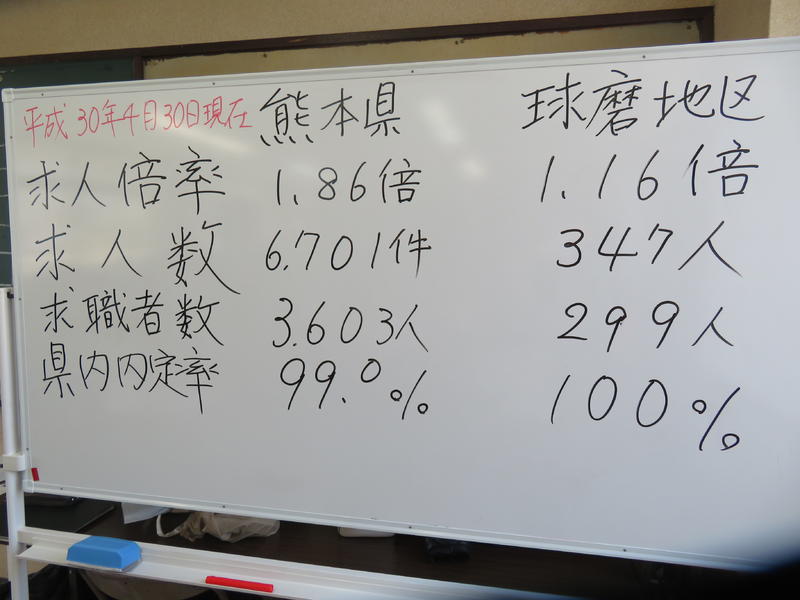 平成30年4月30日現在 熊本県 球磨地区
求人倍率 1.86倍 1.16倍
求人数 6.701件 347人
求職者数 3.603人 299人
県内内定率 99.0% 100%